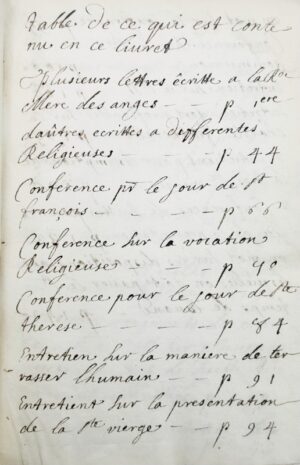 table de ce qui est conte
nu en ce liuret
plusieurs lettres écritte a la Rde
Mere des anges — — p 1ere
daûtres écrittes a differentes
Religieuses — — — p 44
Conference pr le jour de st
françois — — — — p 66
Conference sur la vocation
Religieuse — — — p 70
Conference pour le jour de ste
therese — — — — p 84
Entretien sur la maniere de ter
rasser lhumain — — p 91
Entretient sur la presentation
de la ste vierge — — p 94